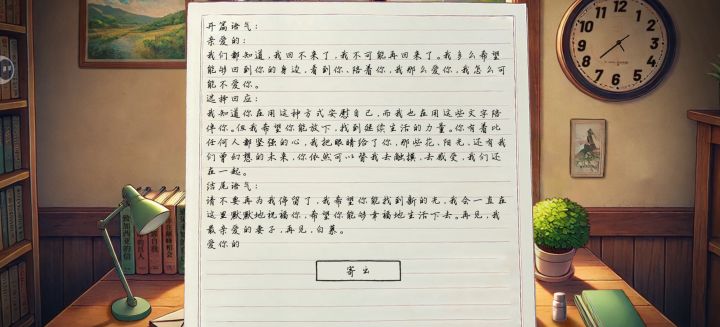 开篇语气：
亲爱的：
我们都知道，我回不来了，我不可能再回来了。我多么希望
能够回到你的身边，看到你、陪着你，我那么爱你，我怎么可
能不爱你。
选择回应：
我知道你在用这种方式安慰自己，而我也在用这些文字陪
伴你。但我希望你能放下，找到继续生活的力量。你有着比
任何人都坚强的心，我把眼睛给了你，那些花、阳光，还有我
们曾幻想的未来，你依然可以替我去触摸，去感受，我们还
在一起。
结尾语气：
请不要再为我停留了，我希望你能找到新的光，我会一直在
这里默默地祝福你，希望你能够幸福地生活下去。再见，我
最亲爱的妻子，再见，白慕。
爱你的
寄出
12
1
2
3
4
5
6
7
8
9
10
11